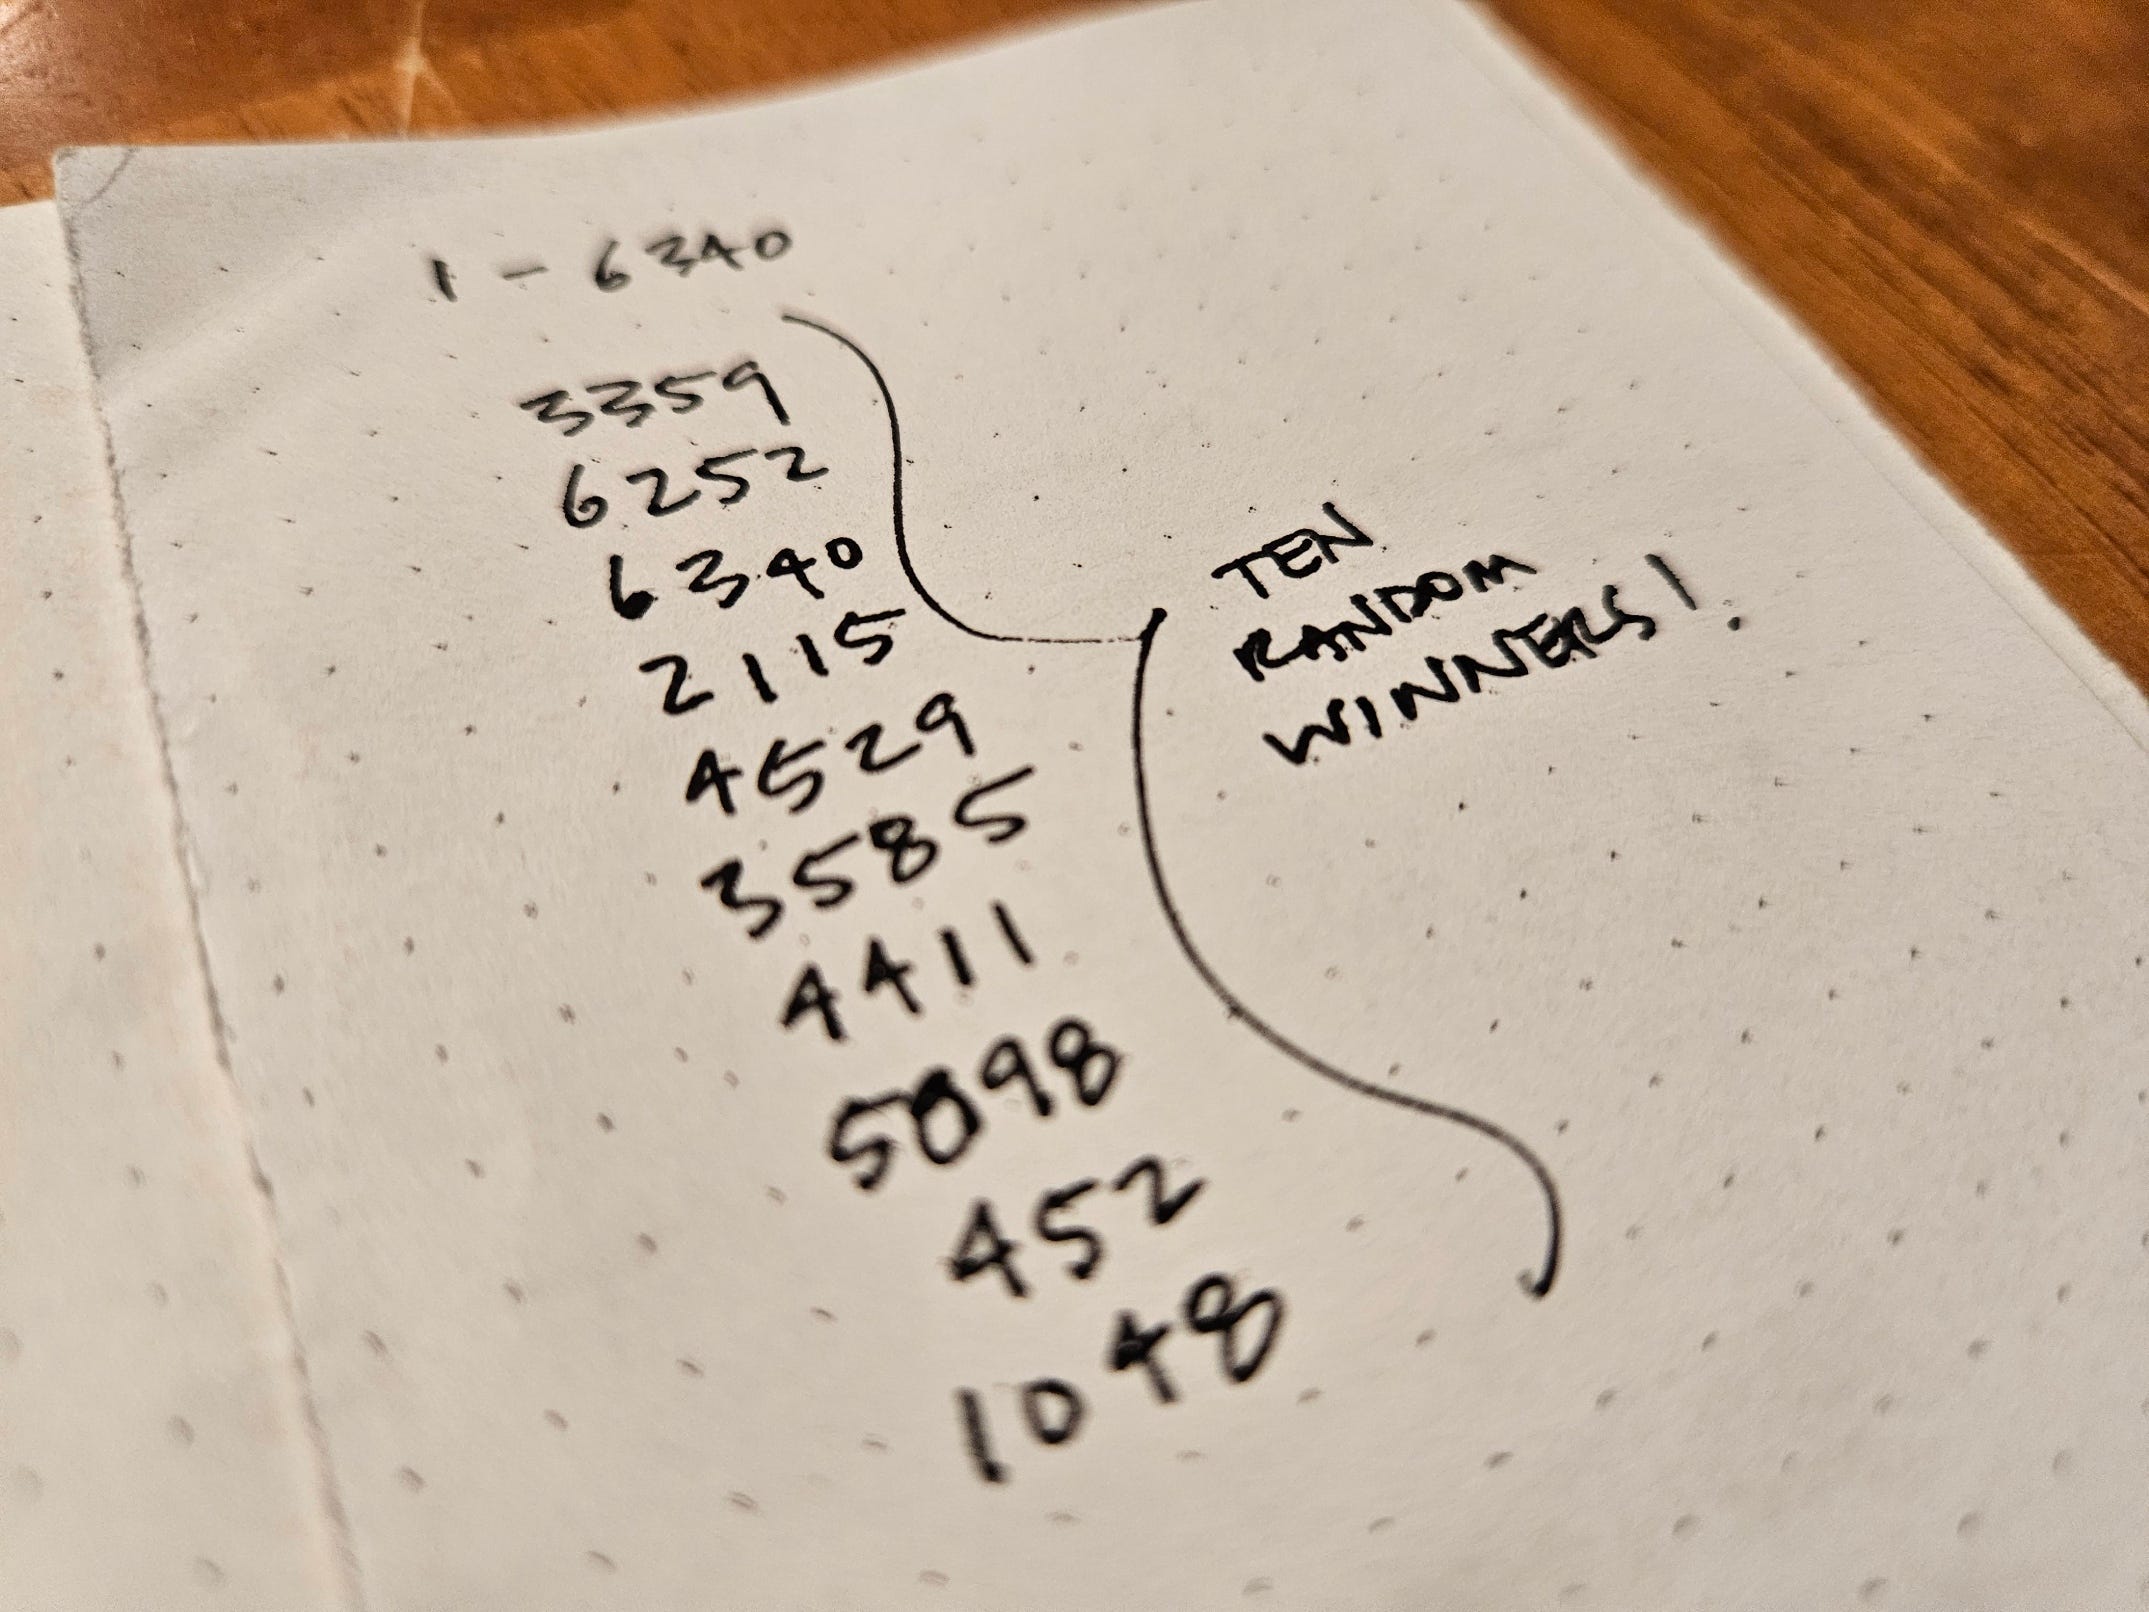 1 - 6340
3359
6252
6340
2115
4529
3585
4411
5898
452
1048
TEN
RANDOM
WINNERS!